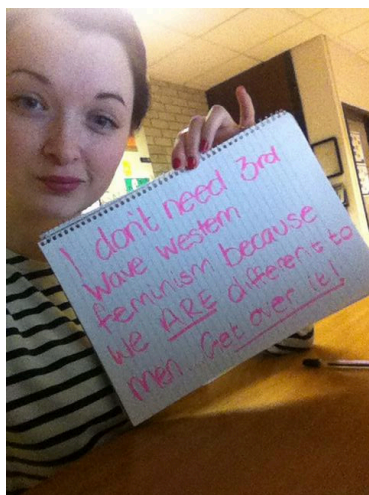 I don't need 3rd
wave western
feminism because
we ARE different to
men... Get over it!